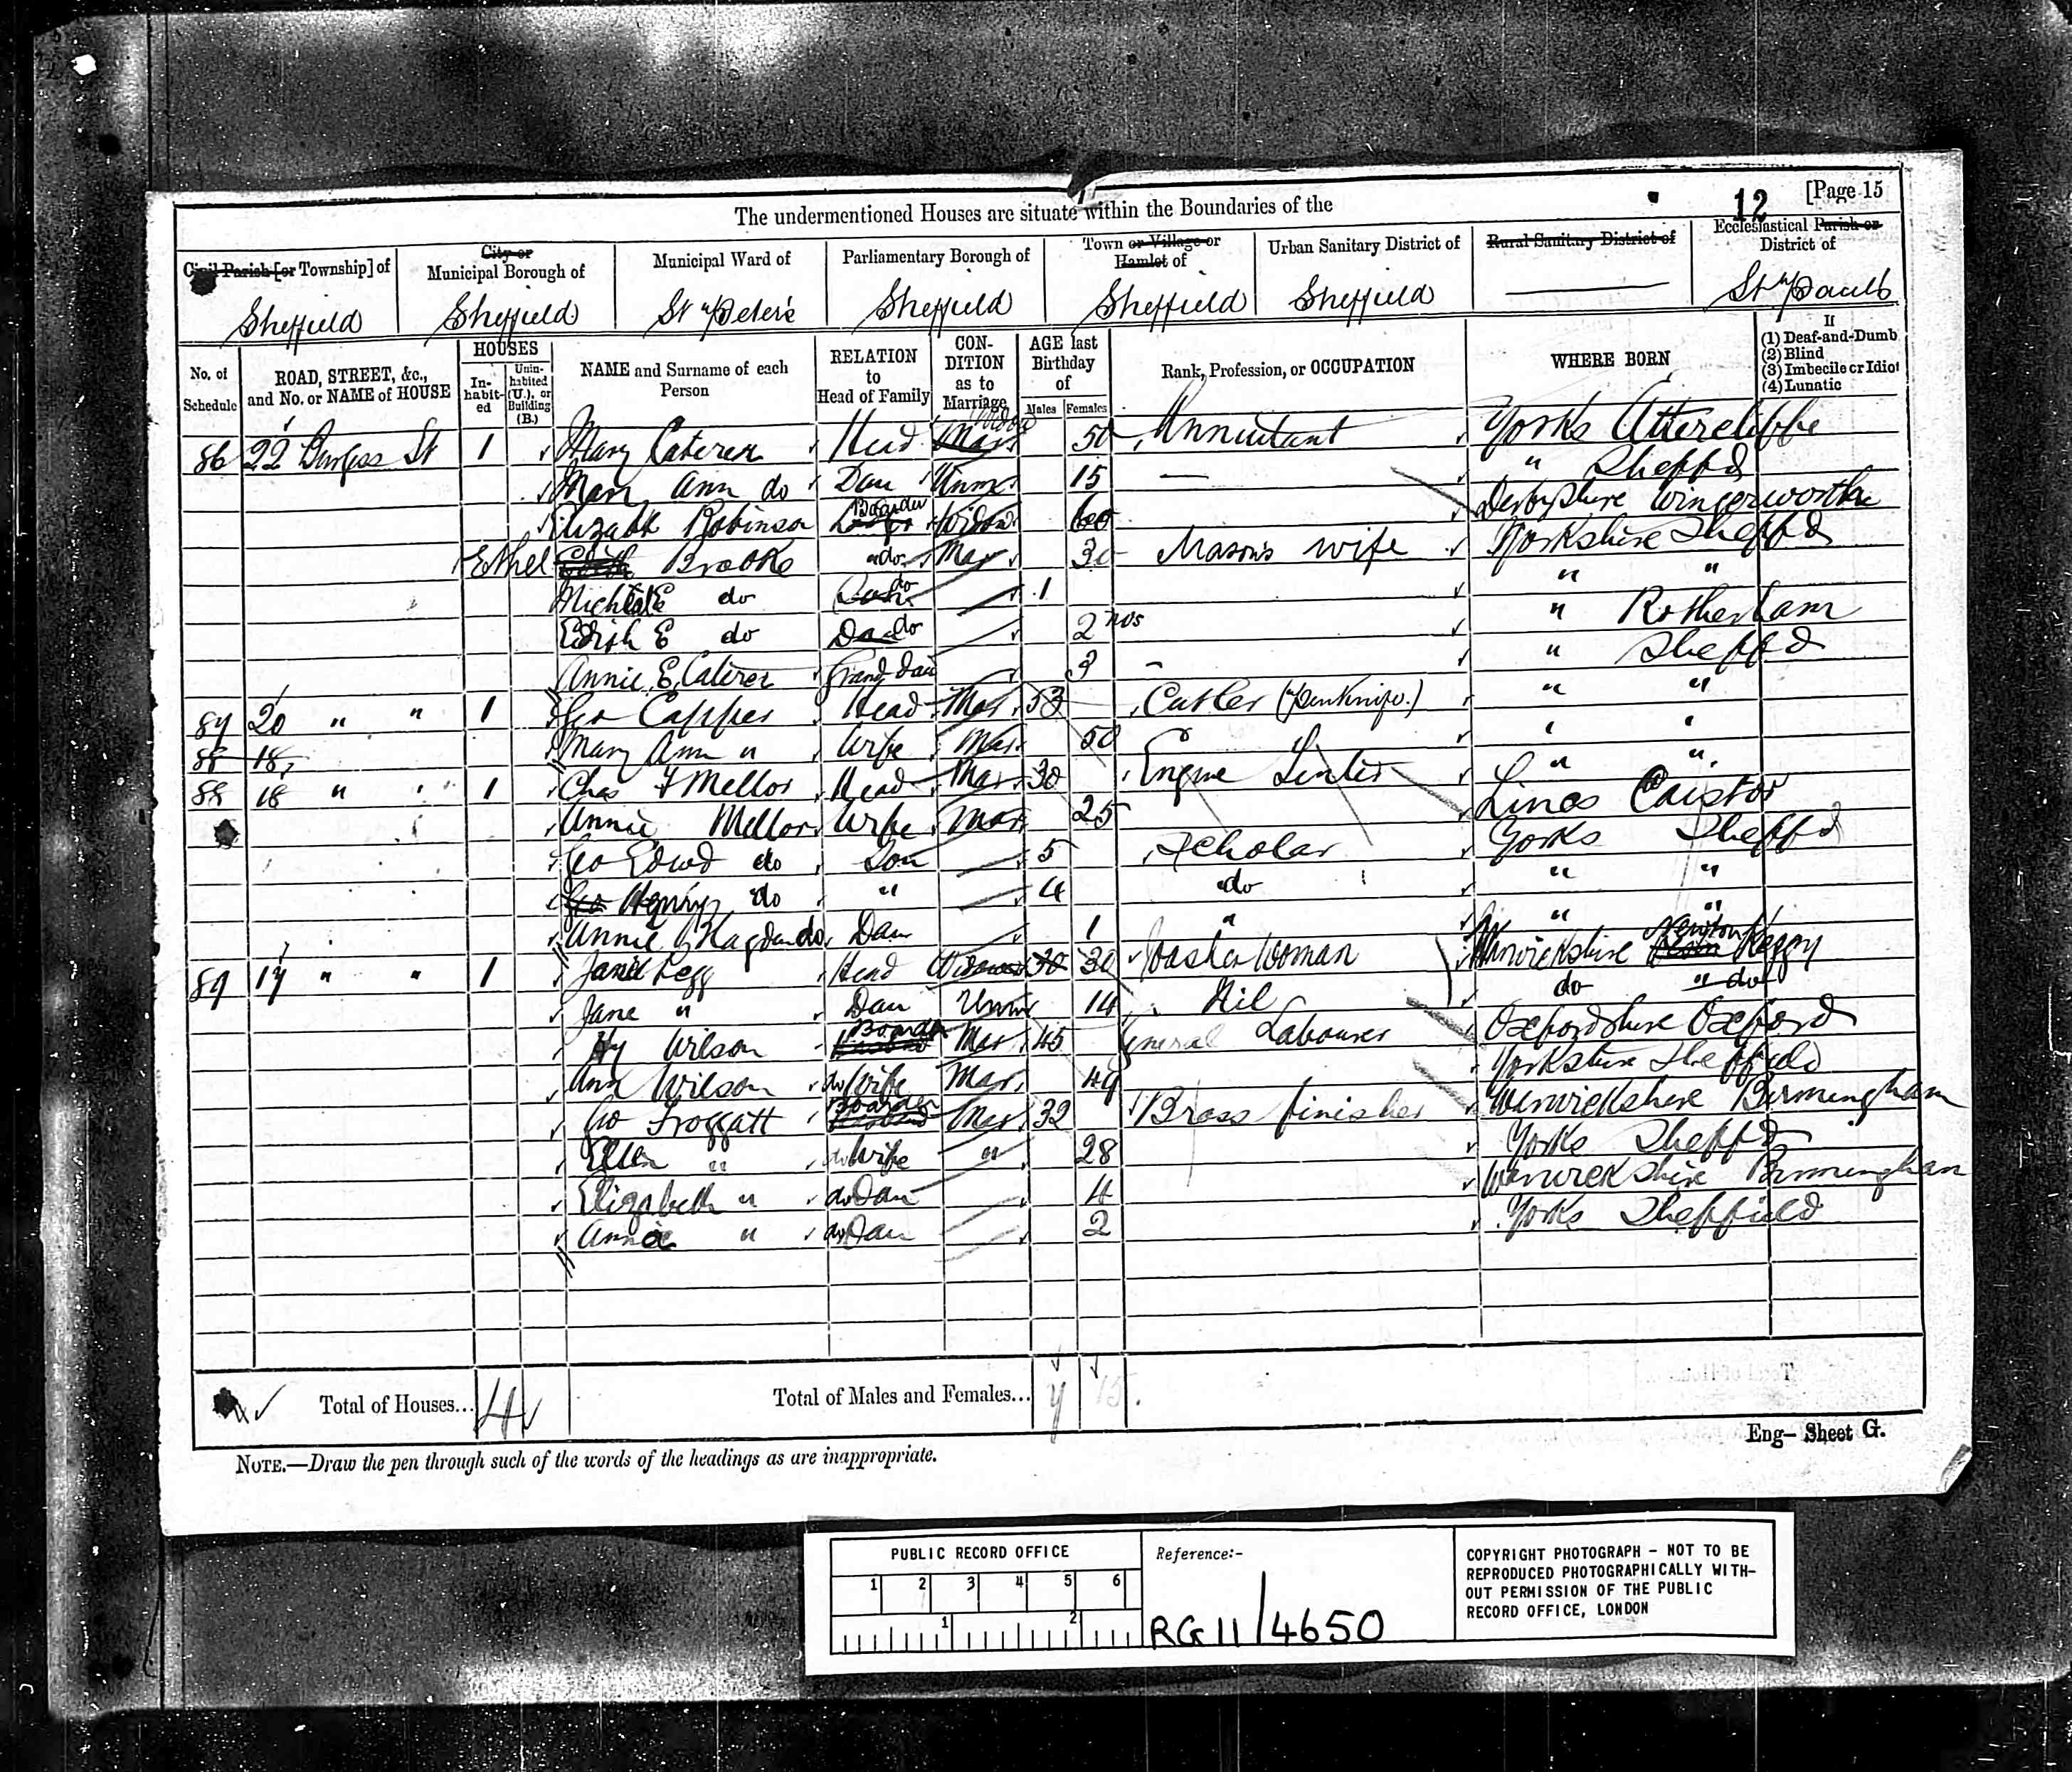 12 [Page 15
The undermentioned Houses are situate within the Boundaries of the
Civil Parish [or Township] of
City or Municipal Borough of
Municipal Ward of
Parliamentary Borough of
Town or Village or Hamlet of
Urban Sanitary District of
Rural Sanitary District of
Ecclesiastical Parish or District of
Sheffield Sheffield St Peter's Sheffield Sheffield Sheffield St Pauls
No. of Schedule
ROAD, STREET, &c., and No. or NAME of HOUSE
HOUSES
In-habit-ed
Unin-habited (U.), or Building (B.)
NAME and Surname of each Person
RELATION to Head of Family
CON-DITION as to Marriage
AGE last Birthday of
Males Females
Rank, Profession, or OCCUPATION
WHERE BORN
If
(1) Deaf-and-Dumb
(2) Blind
(3) Imbecile or Idiot
(4) Lunatic
86 22 Burgess St 1 Mary Caterer Head Mar Widow 50 Annuitant Yorks Attercliffe
Mary Ann do Dau Unm 15 — " Sheffd
Elizabth Robinson Boarder Widow 60 Derbyshire Wingerworth
Ethel Brooke do Mar 30 Mason's wife Yorkshire Sheffd
E do do 1 " "
Edith E do Dau do 2 mos " Rotherham
Annie E. Caterer Grand dau 3 - " Sheffd
87 20 " " 1 Geo Capper Head Mar 53 Cutler (Penknife) " "
88 18 Mary Ann " Wife Mar 50 " "
88 18 " " 1 Chas F Mellor Head Mar 30 Engine " "
Annie Mellor Wife Mar 25 Lincs Caistor
Geo Edwd do Son 5 Scholar Yorks Sheffd
Geo Henry do " 4 do " "
Annie do Dau 1 " " "
89 17 " " 1 Jane Legg Head Widow 30 Woman Warwickshire Newton Regny
Jane " Dau Unm 14 Nil do " do
Hy Wilson Boarder Mar 45 General Labourer Oxfordshire Oxford
Ann Wilson do Wife Mar 49 Yorkshire Sheffield
Geo Froggatt Boarder Mar 32 Brass finisher Warwickshire Birmingham
Ellen " do Wife " 28 Yorks Sheffd
Elizabeth " do Dau 4 Warwickshire Birmingham
Annie " do Dau 2 Yorks Sheffield
Total of Houses... 4 Total of Males and Females... 7 15
Eng- Sheet G.
NOTE.—Draw the pen through such of the words of the headings as are inappropriate.
PUBLIC RECORD OFFICE
1 2 3 4 5 6
1 2
Reference:-
RG 11/4650
COPYRIGHT PHOTOGRAPH - NOT TO BE
REPRODUCED PHOTOGRAPHICALLY WITH-
OUT PERMISSION OF THE PUBLIC
RECORD OFFICE, LONDON